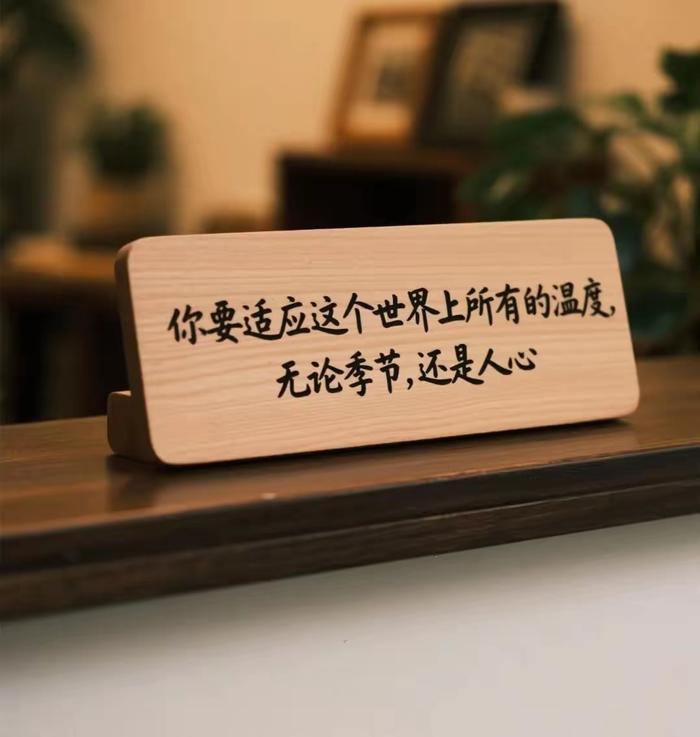 你要适应这个世界上所有的温度,
无论季节,还是人心